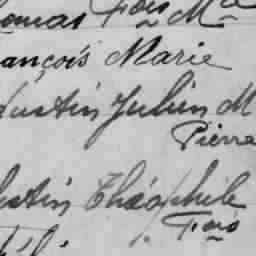 omas Fois M
ançois Marie
Justin Julien M
Pierre
ustin Théophile
Fois